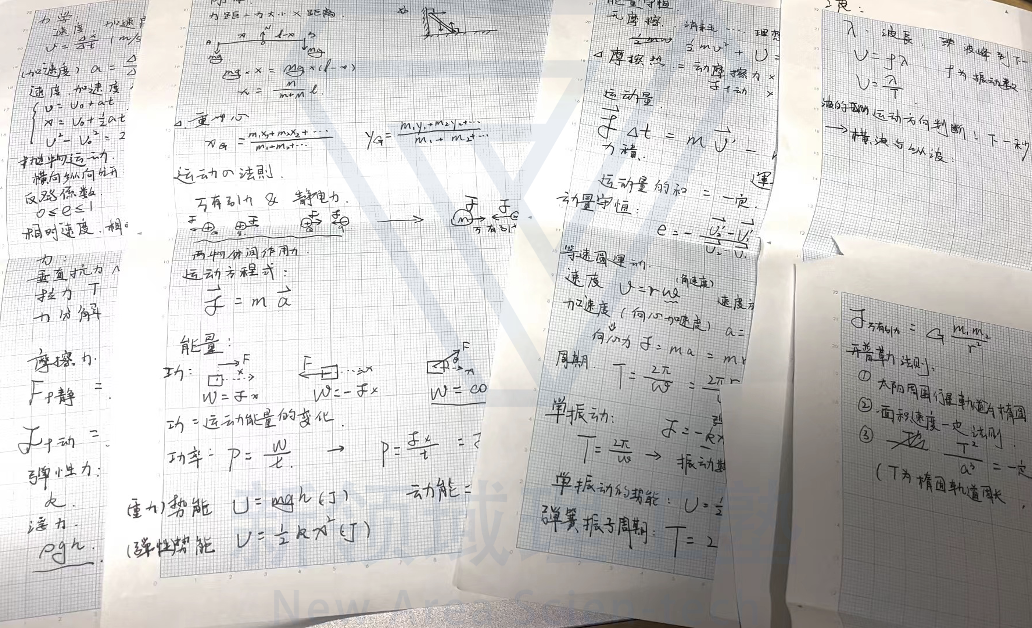 力学
速度 加速
v = Δx/Δt (m/s
(加速度) a = Δ
速度 加速度
v = v₀ + at
x = v₀ + ½at
v² - v₀² = 2
抛物运动.
横向纵向分开
反発係数
0 ≤ e ≤ 1
相对速度. 相
力:
垂直抗力 N
拉力 T
力分解
摩擦力.
F静 =
f动 =
弹性力:
k
浮力.
ρgh.
力距 = 力大小 × 距離.
mg · x = Mg × (l - x)
x = M/(m+M) l
△ 重心
x_G = (m₁x₁+m₂x₂+…)/(m₁+m₂+…) y_G = (m₁y₁+m₂y₂+…)/(m₁+m₂+…)
运动の法則.
万有引力 & 静电力.
两物体间作用力
运动方程式:
f = m a
能量:
功: F x F x F x
W = fx W = -fx W = co
功 = 运动能量的变化.
功率: P = W/t. → P = fx/t =
(重力)势能 U = mgh (J) 动能 =
(弹性势能 U = ½kx² (J)
能量守恒
无摩擦.
½mv² + U =
△ 摩擦热 = 动摩擦力 ×
f动 ×
运动量.
f Δt = m v' -
力積.
运动量的和 = 一定.
动量守恒:
e = - (v₂' - v₁')/(v₂ - v₁)
等速圆运动.
速度 v = rω (角速度) 速度方
加速度 (向心加速度) a =
向心力 f = ma = mr
周期 T = 2π/ω = 2πr
单振动: f = -kx
T = 2π/ω → 振动数
单振动的势能: U = ½
弹簧振子周期: T = 2
λ: 波長
f为振动数
v = fλ
v = λ/T
波的运动方向判断: 下一秒
→ 横波与纵波.
f万有引力 = G m₁m₂/r²
开普勒力法则.
① 太阳周围行星轨道为椭圆
② 面积速度一定法则
③ T²/a³ = 一定
(T为椭圆轨道周长.
新领域理
New Area Scien